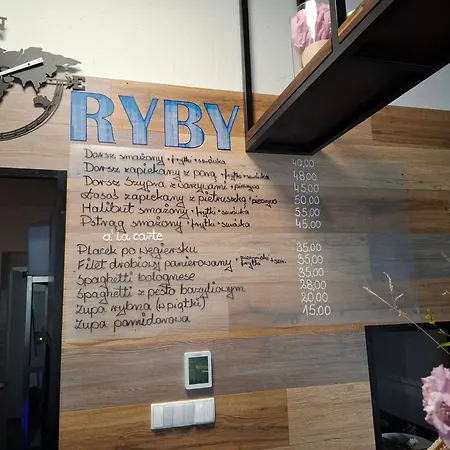 RYBY
Dorsz smażony + frytki + surówka 40,00
Dorsz zapiekany z porą + frytki + surówka 48,00
Dorsz Szypra z warzywami + pieczywo 45,00
Łosoś zapiekany z pietruszką + pieczywo 50,00
Halibut smażony + frytki + surówka 55,00
Pstrąg smażony + frytki + surówka 45,00
a'la carte
Placek po węgiersku 35,00
Filet drobiowy panierowany + frytki + sur. 35,00
Spaghetti bolognese 35,00
Spaghetti z pesto bazyliowym 28,00
Zupa rybna (w piątki) 20,00
Zupa pomidorowa 15,00
E